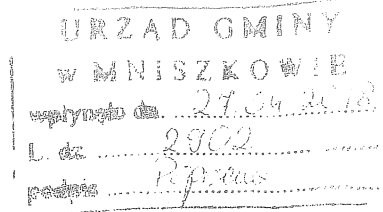 URZĄD GMINY
w MNISZKOWIE
wpłynęło dn. 27.04.2018
L. dz. 2902
podpis